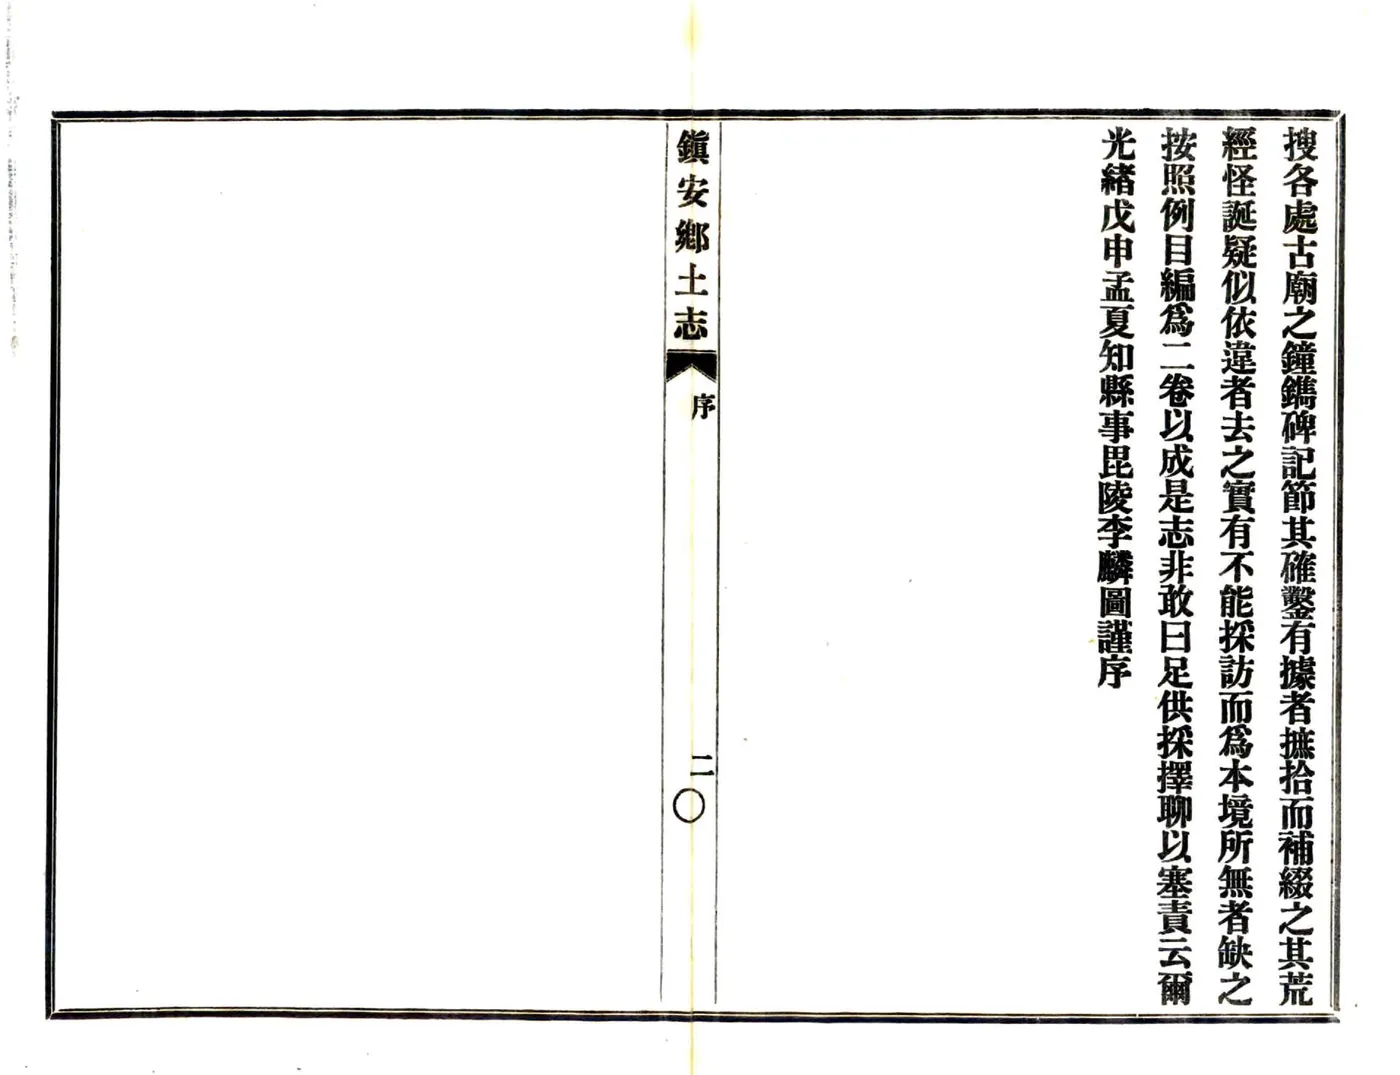 搜各處古廟之鐘鐫碑記節其確鑿有據者摭拾而補綴之其荒
經怪誕疑似依違者去之實有不能採訪而爲本境所無者缺之
按照例目編爲二卷以成是志非敢曰足供採擇聊以塞責云爾
光緒戊申孟夏知縣事毘陵李麟圖謹序
鎭安鄉土志
序
二